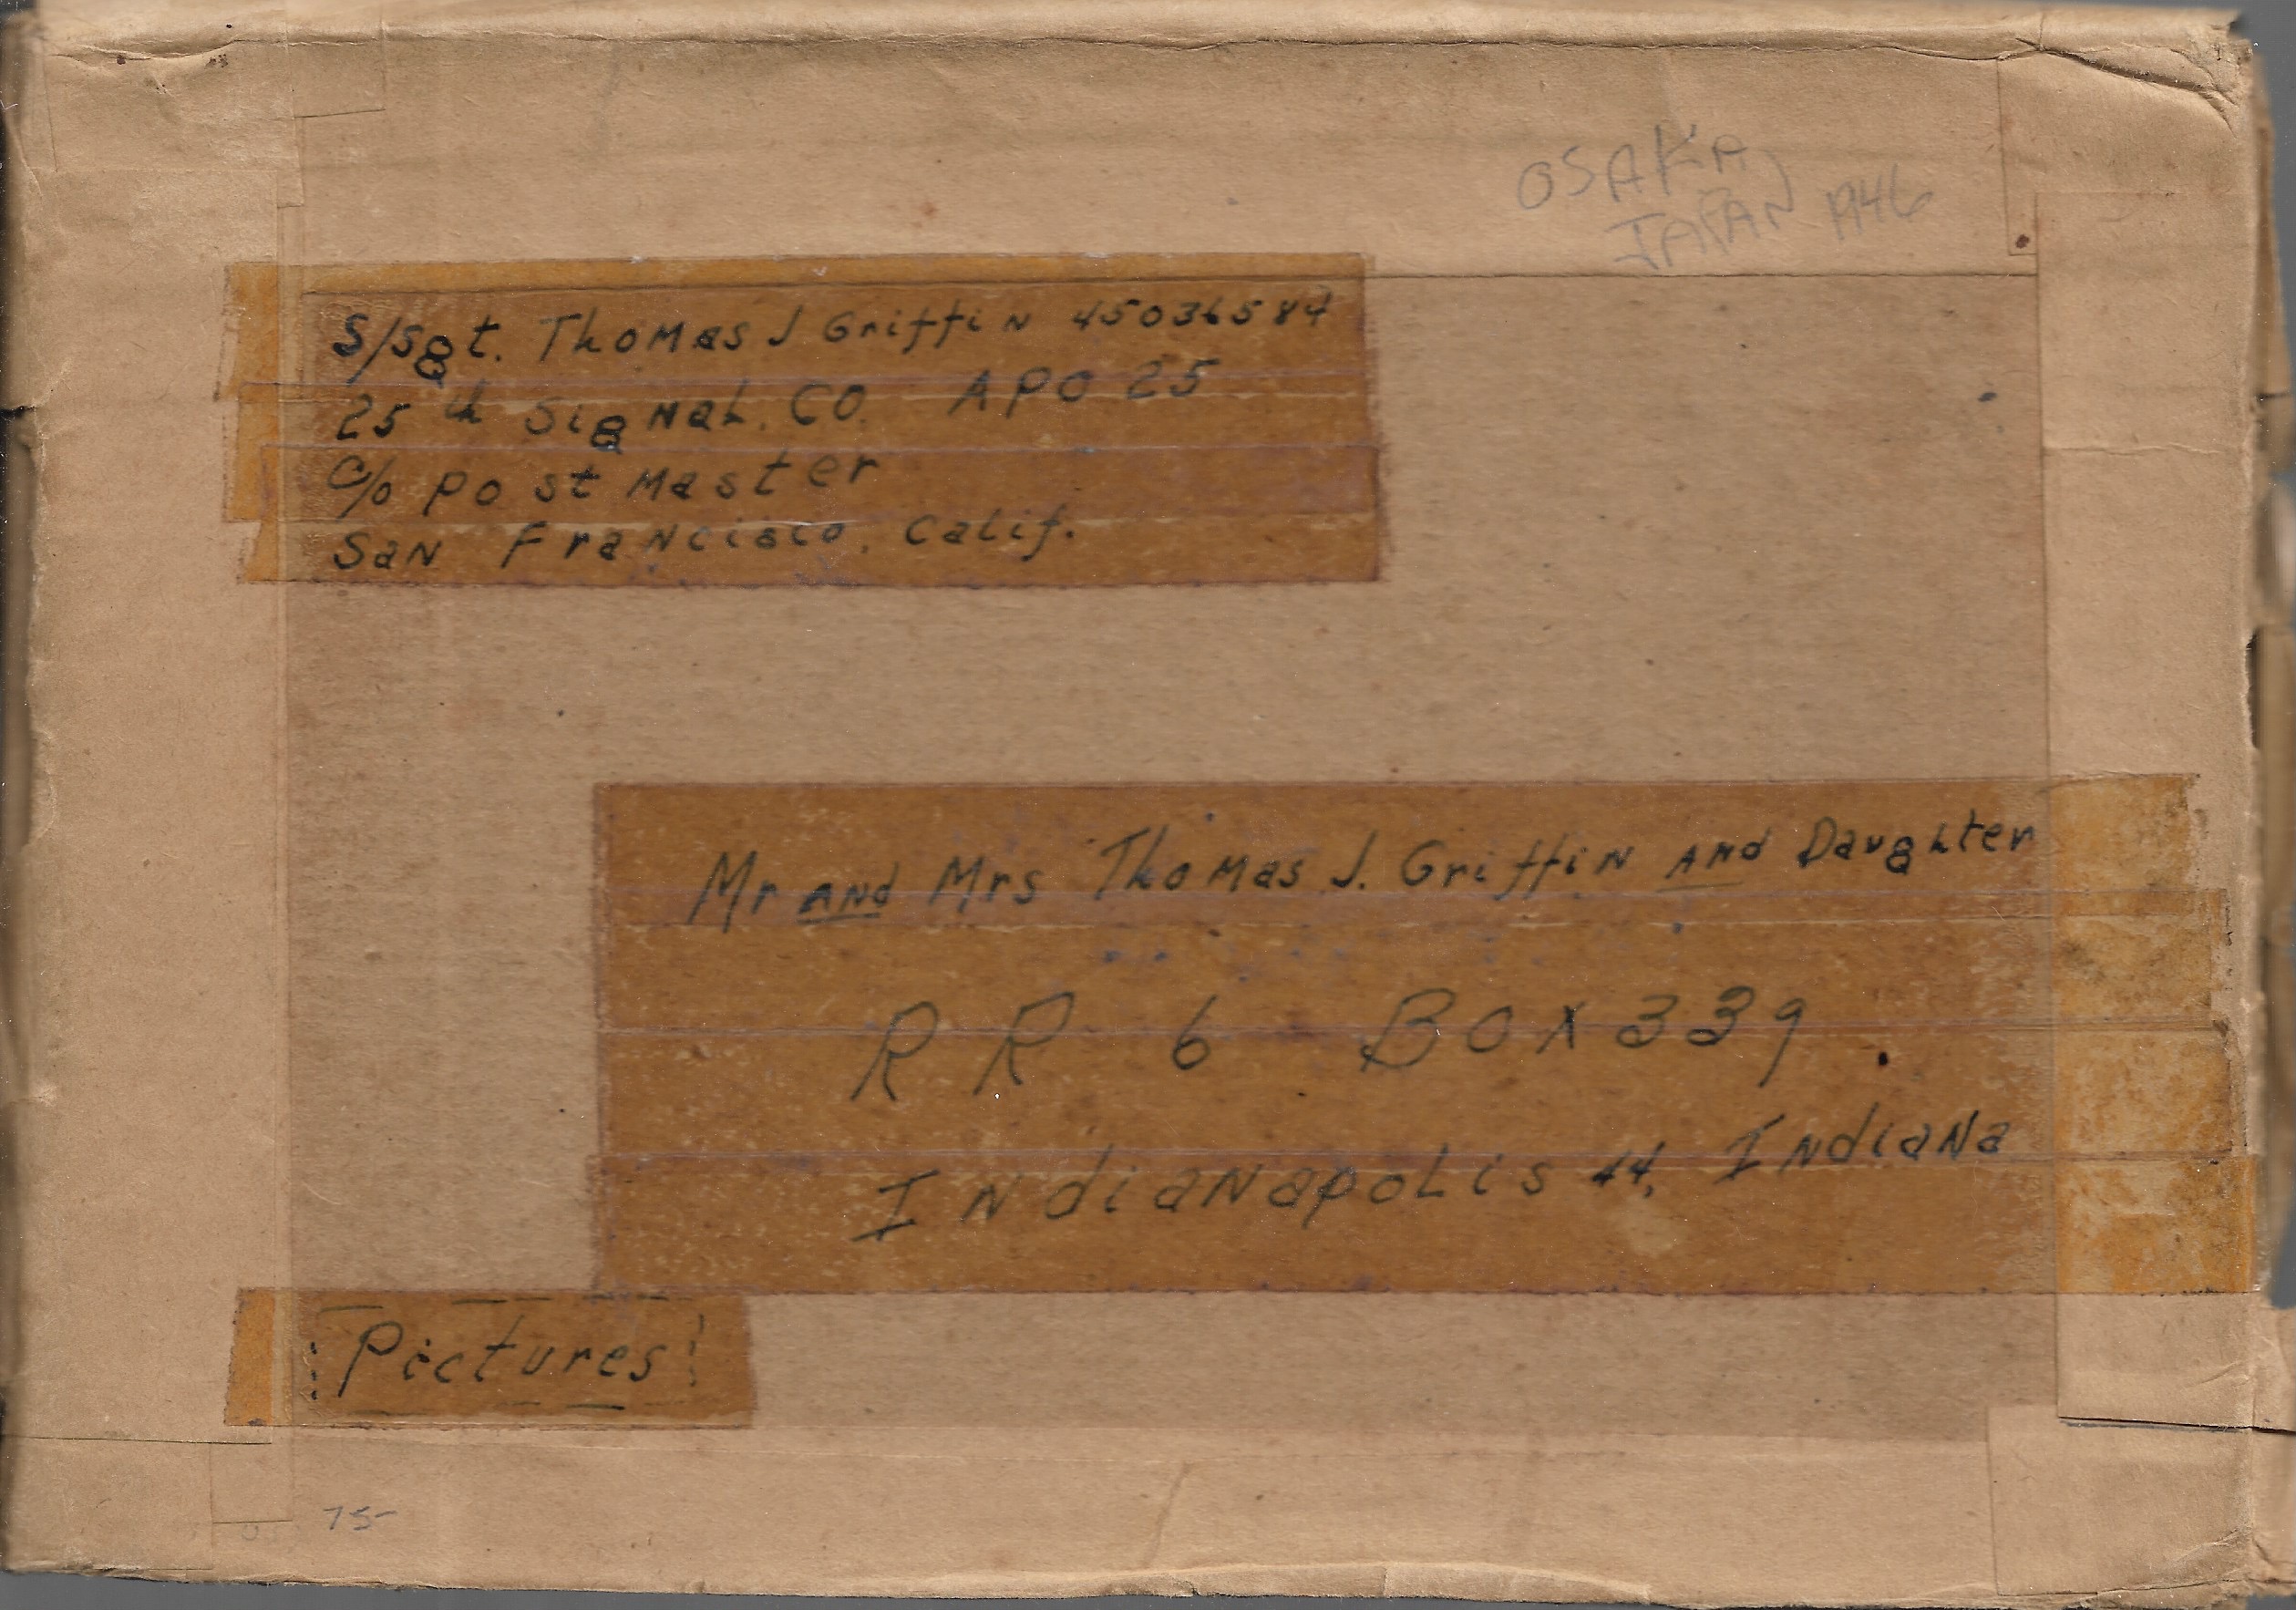 OSAKA
JAPAN 1946
S/Sgt. Thomas J Griffin
25th Signal. CO. APO 25
c/o Post Master
San Francisco, Calif.
Mr and Mrs Thomas J. Griffin and Daughter
RR 6 Box 339
Indianapolis 44, Indiana
Pictures
75-